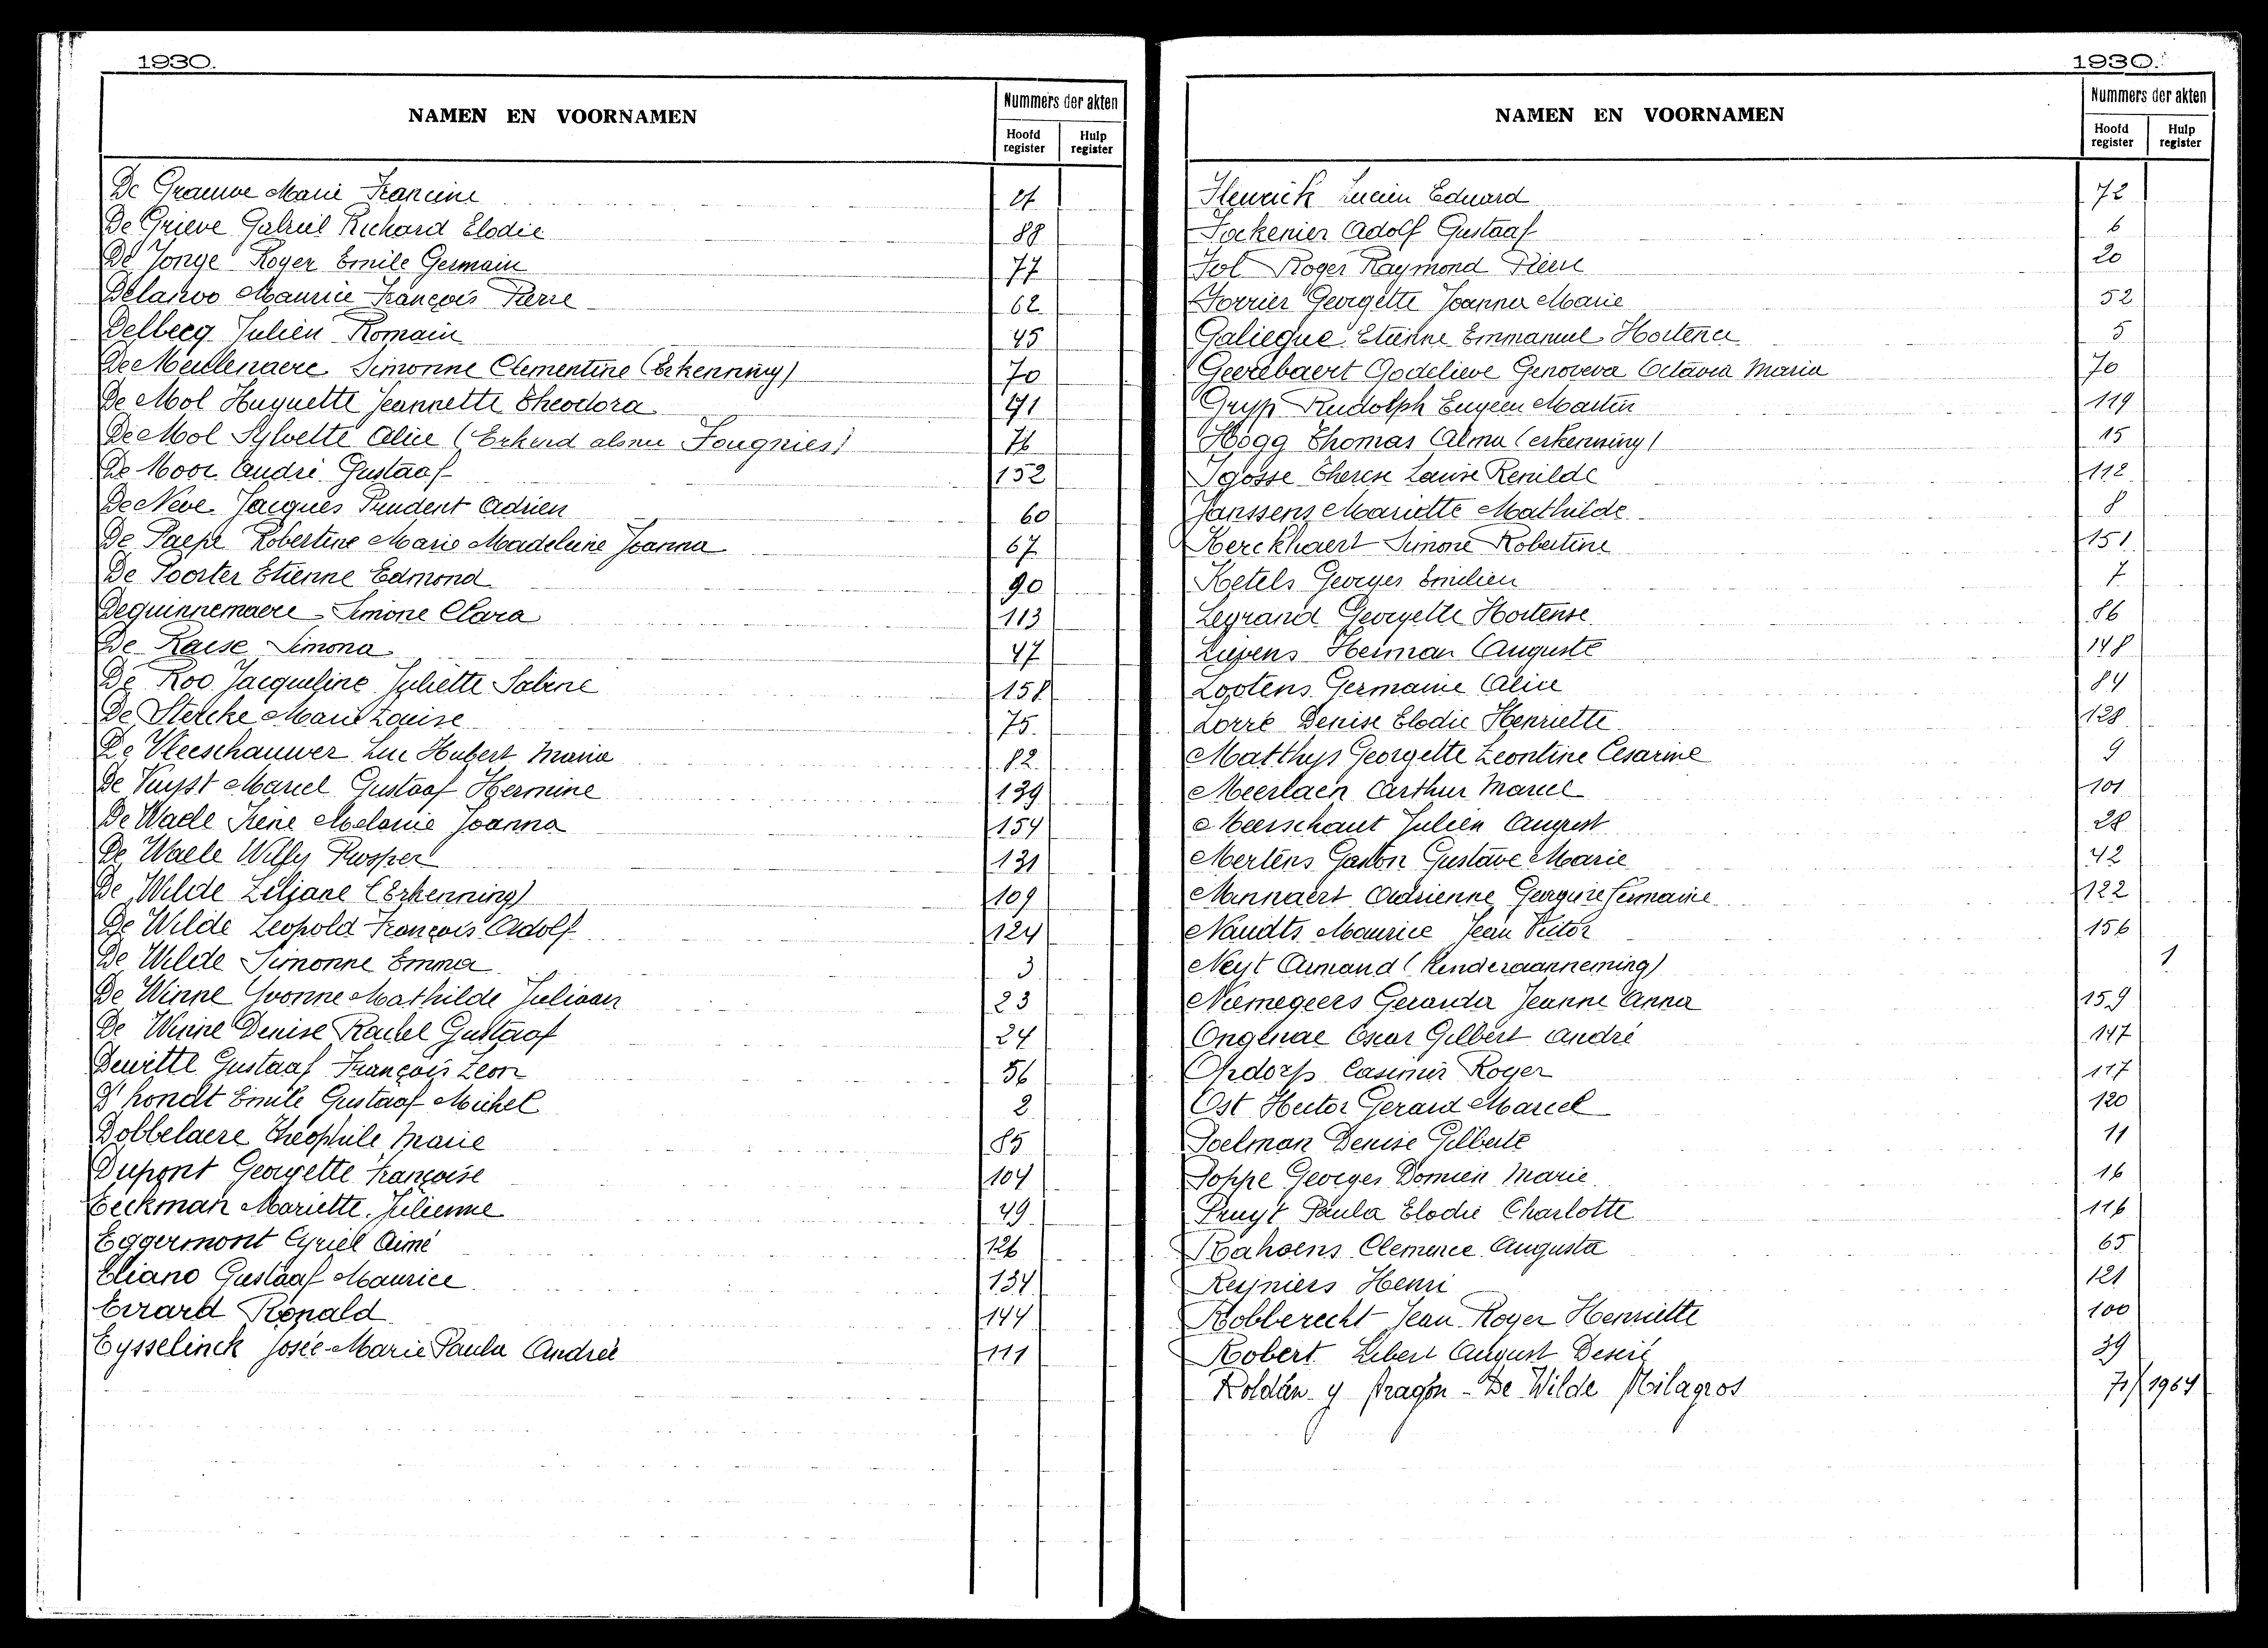 1930.
NAMEN EN VOORNAMEN
Nummers der akten
Hoofd register
Hulp register
De Grauwe Marie Francine 21
De Grieve Gabriël Richard Elodie 88
De Jonge Roger Emile Germain 77
Delaroo Maurice François Pierre 62
Delbecq Julien Romain 45
De Meulenaere Simonne Clementine (Erkenning) 70
De Mol Huguette Jeannette Theodora 91
De Mol Sylvette Alice (Erkend als nu Fougnies) 76
De Moor André Gustaaf 152
De Neve Jacques Prudent Adrien 60
De Paepe Robertine Marie Madeleine Joanna 67
De Poorter Etienne Edmond 90
Dequinnemaere Simone Clara 113
De Raese Simona 47
De Roo Jacqueline Juliette Sabine 158
De Stercke Marie Louise 75
De Vleeschauwer Luc Hubert Maria 82
De Vuyst Marcel Gustaaf Hermine 139
De Waele Irène Melanie Joanna 154
De Waele Willy Prosper 131
De Wilde Liljane (Erkenning) 109
De Wilde Leopold François Adolf 124
De Wilde Simonne Emma 3
De Winne Yvonne Mathilde Juliaan 23
De Winne Denise Rachel Gustaaf 24
Dewitte Gustaaf François Leon 56
D'hondt Emile Gustaaf Michel 2
Dobbelaere Théophile Marie 85
Dupont Georgette Françoise 104
Eeckman Mariette Julienne 49
Eggermont Cyriel Aimé 126
Eliano Gustaaf Maurice 134
Errard Ronald 144
Eysselinck Josée-Marie Paula Andrée 111
1930.
NAMEN EN VOORNAMEN
Nummers der akten
Hoofd register
Hulp register
Lucien Eduard 72
Fockenier Adolf Gustaaf 6
Fol Roger Raymond Pierre 20
Forrier Georgette Joanna Marie 52
Galiegue Etienne Emmanuel Hortence 5
Geerebaert Godelieve Genoveva Octavia Maria 70
Gryp Rudolph Eugeen Martin 119
Hogg Thomas Alma (erkenning) 15
Igosse Therese Louise Renilde 112
Janssens Mariette Mathilde 8
Kerckhaert Simone Robertine 151
Ketels Georges Emilien 7
Legrand Georgette Hortense 86
Lievens Herman Auguste 148
Lootens Germaine Alice 84
Lorré Denise Elodie Henriette 128
Matthys Georgette Leontine Cesarine 9
Meerlaen Arthur Marcel 101
Meerschaut Julien August 28
Mertens Gaston Gustave Marie 42
Minnaert Adrienne Georgine Germaine 122
Naudts Maurice Jean Victor 156
Neyt Armand (Kinderaanneming) 1
Niemegeers Gerarda Jeanne Anna 159
Ongenae Oscar Gilbert André 147
Opdorp Casimir Roger 117
Ost Hector Gerard Marcel 120
Poelman Denise Gilberte 11
Poppe Georges Domien Marie 16
Pruyt Paula Elodie Charlotte 116
Rahoens Clemence Augusta 65
Reyniers Henri 121
Robberecht Jean Roger Henriette 100
Robert Libert August Desiré 39
Roldán y Aragón - De Wilde Milagros 71/1964